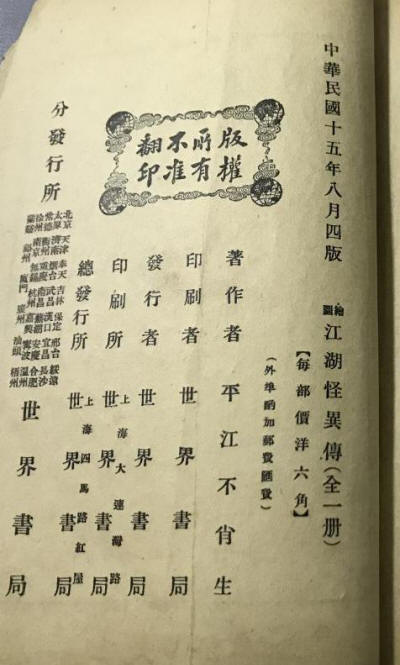 中華民國十五年八月四版
繪圖江湖怪異傳（全一册）
【每部價洋六角】
（外埠酌加郵費匯費）
版權所有不准翻印
著作者 平江不肖生
印刷者 世界書局
發行者 世界書局
印刷所 上海大連灣路 世界書局
總發行所 上海四馬路紅屋 世界書局
分發行所
北京 天津 奉天 吉林 保定 邢台 綏遠
太原 濟南 烟台 武昌 漢口 宜昌 長沙
常德 衡州 重慶 南昌 蕪湖 安慶 合肥
徐州 南京 無錫 杭州 嘉興 寧波 溫州
蘭谿 福州 廈門 廣州 汕頭 梧州
世界書局